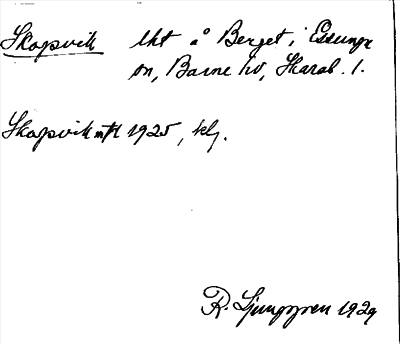 Skogsvik lht å Berget i Essunga
sn, Barne hd, Skarab. l.
Skogsvik mtl 1925, kg.
R. Ljunggren 1929